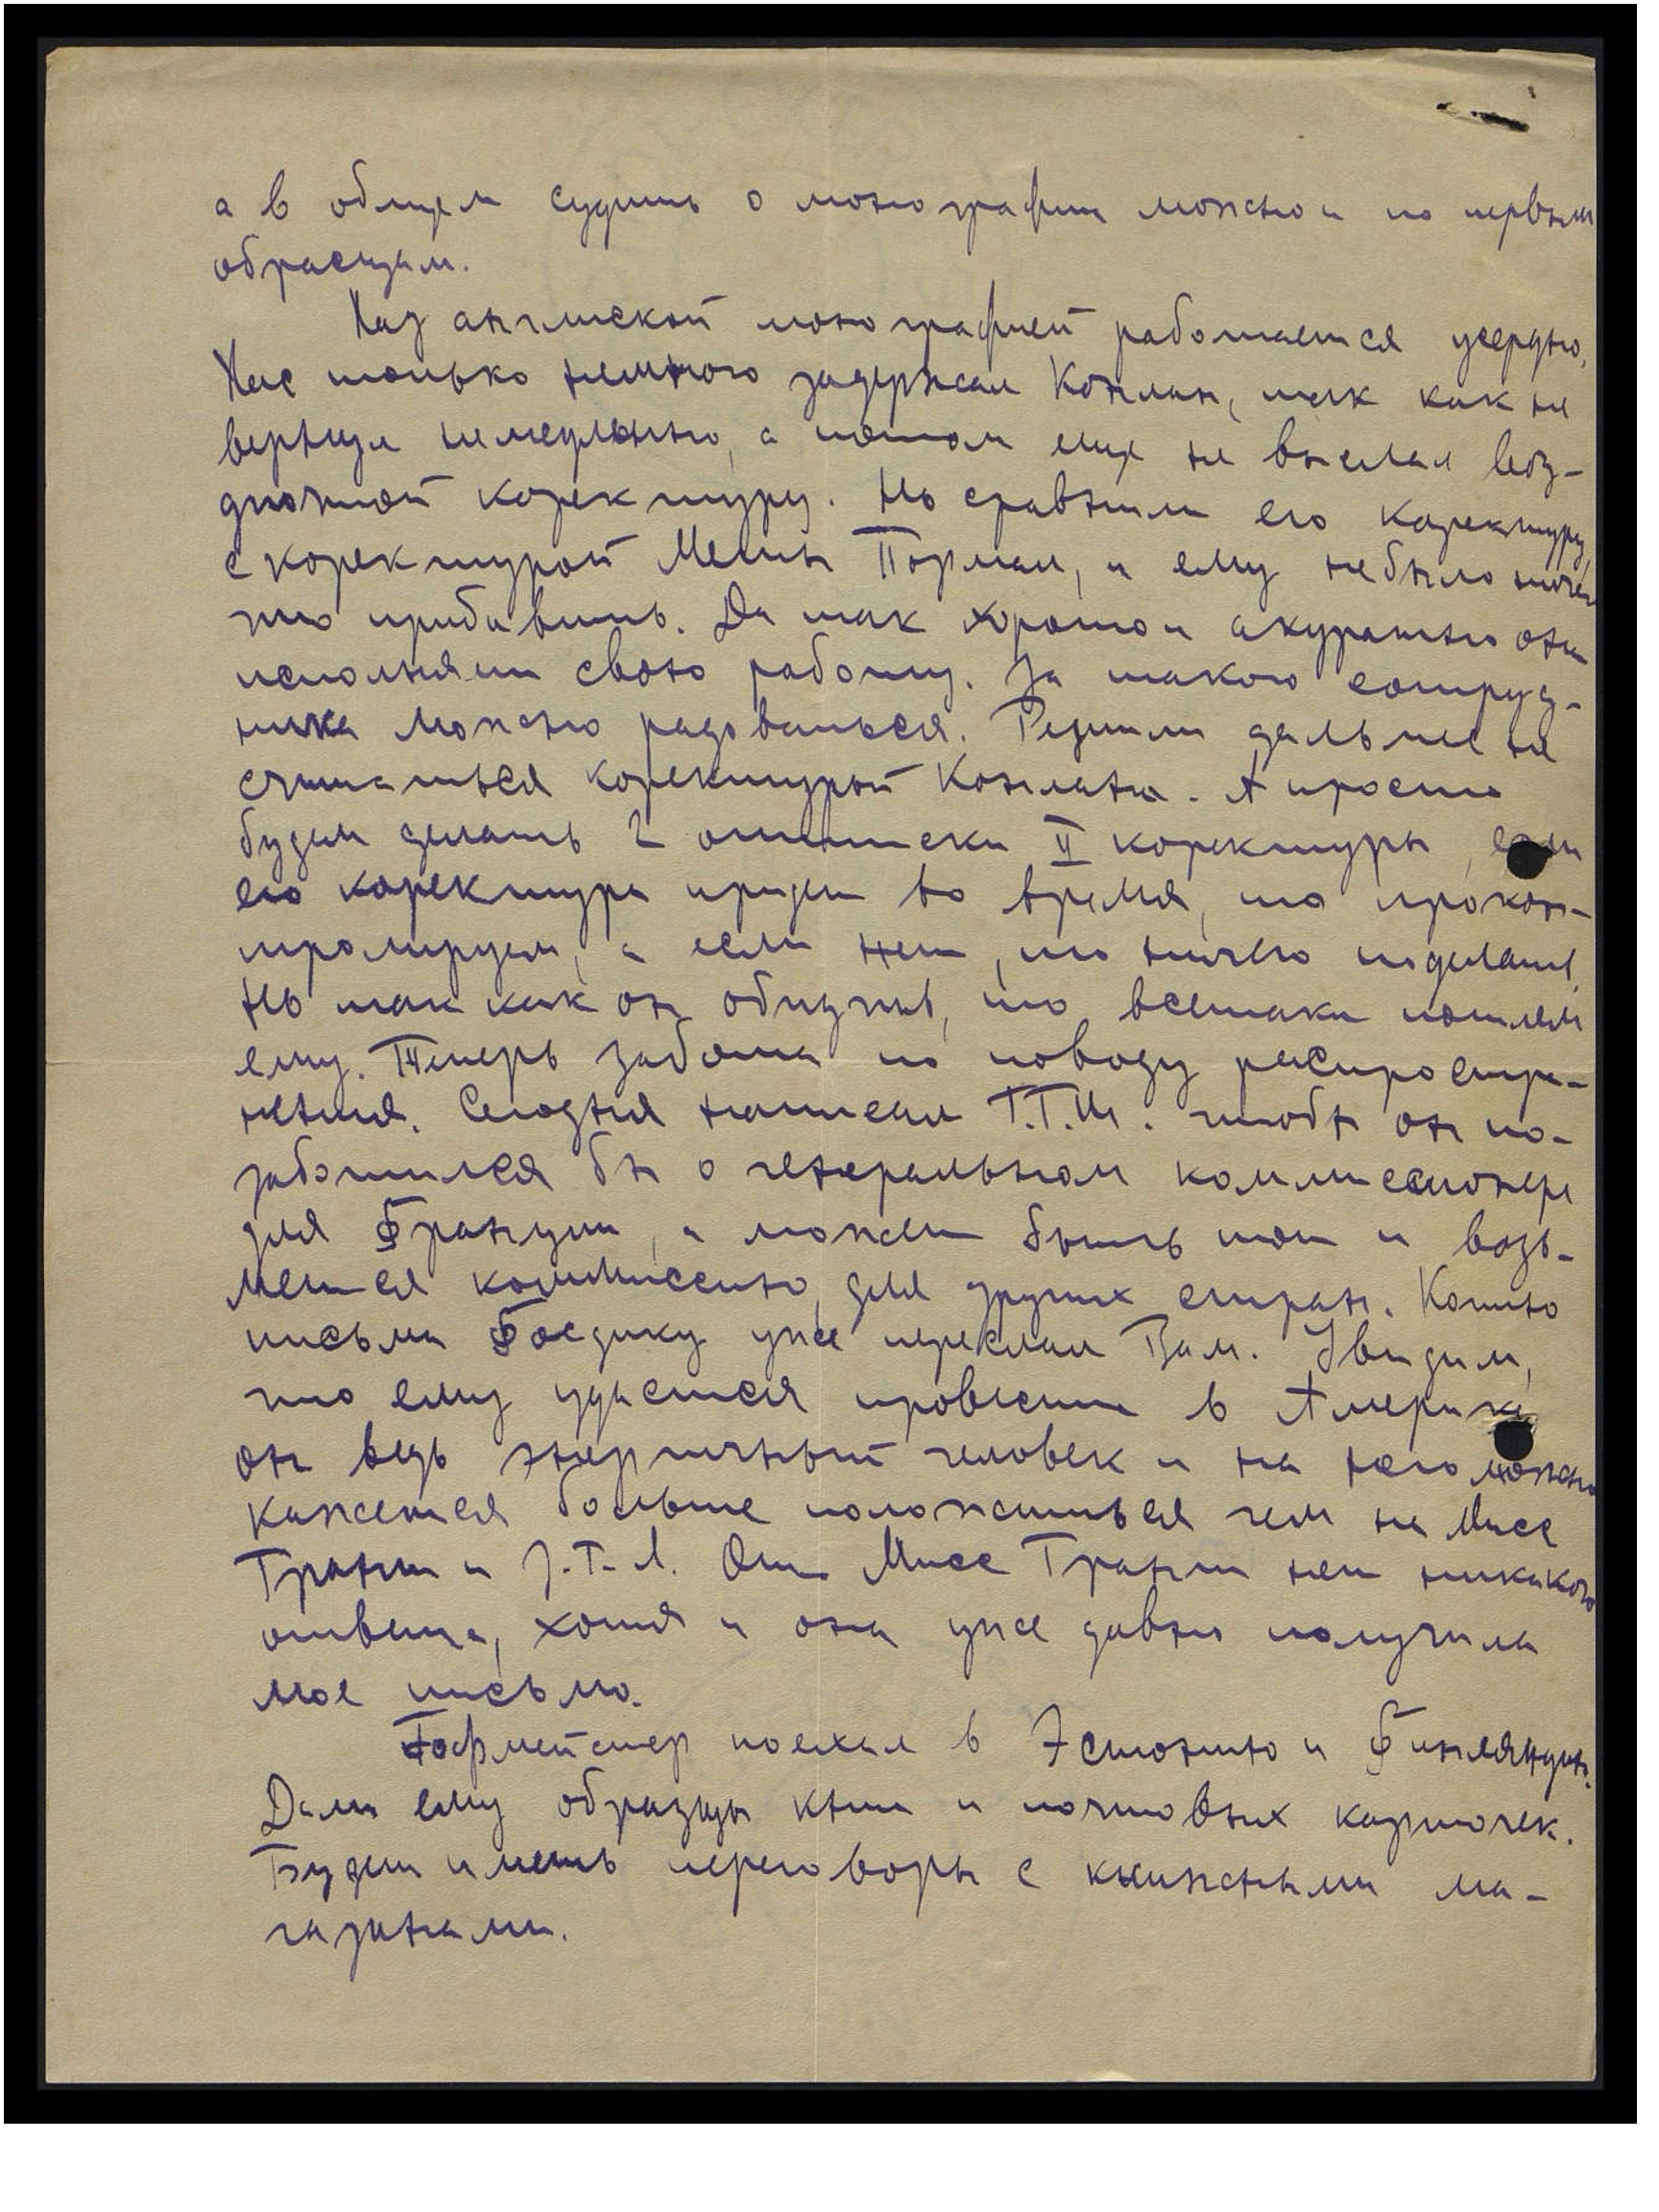 а в общем судить о монографии можно и по первым
образцам.
Над английской монографией работается усердно,
Нас только немного задержал Конлан, так как не
вернул немедленно, а потом еще не выслал
коректуру. Но сравнили его коректуру
с коректурой Мелин Порман, и ему не было ничего
что прибавить. Да так хорошо и акуратно они
исполняли свою работу. За такого сотруд-
ника можно радоваться. Решили дальше не
считаться коректурой Конлана. А просто
будем делать 2 оттиски II коректуры, если
его коректура придет во время, то прокон-
тролируем, а если нет, то ничего поделать,
Но так как он обидчив, то всетаки пошлем
ему. Теперь забота по поводу распростра-
нения. Сегодня написал Г.Г.Ш. чтобы он по-
заботился бы о генеральном коммиссионере
для Франции, а может быть тот и возь-
мется коммиссию для других стран. Копию
письма Фосдику уже переслал Вам. Увидим,
что ему удастся провести в Америке
он ведь энергичный человек и на него можно
кажется больше положиться чем на Мисс
Грант и З.Г.Л. От Мисс Грант нет никакого
ответа, хотя и она уже давно получила
мое письмо.
Гофмейстер поехал в Эстонию и Финляндию.
Дали ему образцы книг и почтовых карточек.
Будет иметь переговоры с книжными ма-
газинами.